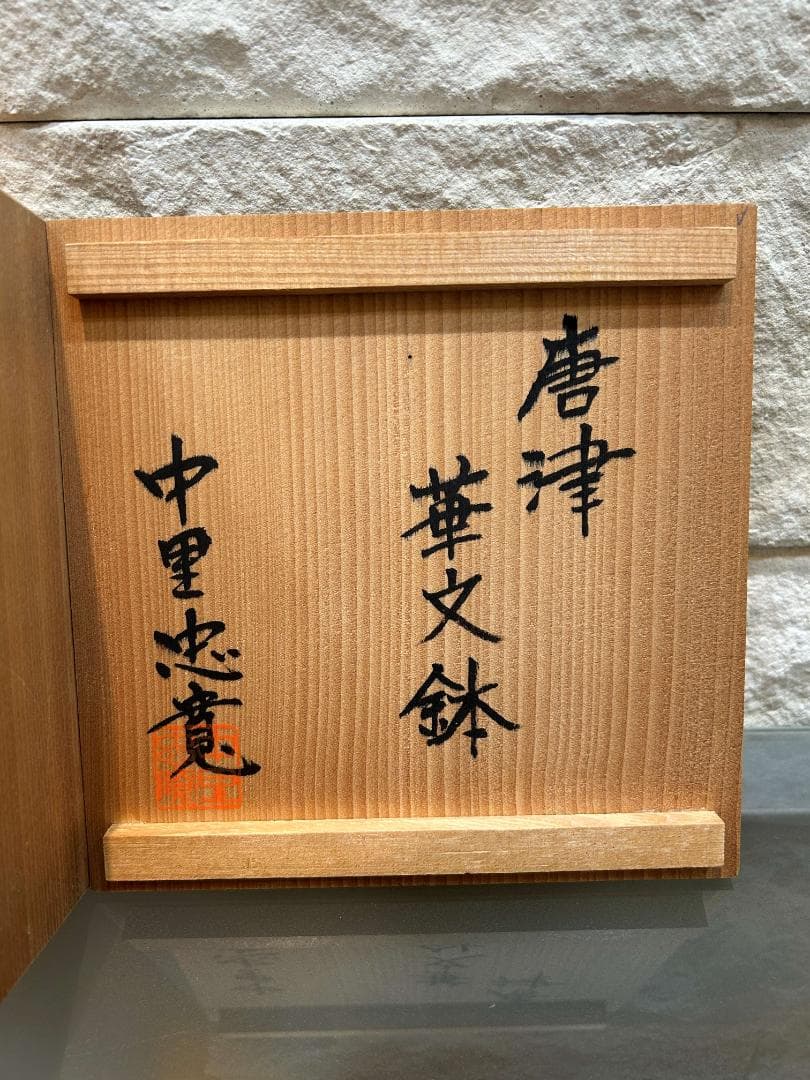 唐津
華文鉢
中里忠寛